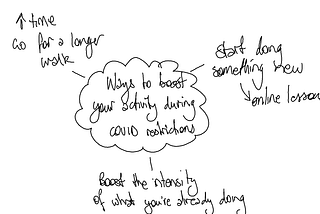 ↑ time
Go for a longer
walk
Ways to boost
your activity during
COVID restrictions
start doing
something new
↳ online lesson
Boost the intensity
of what you're already doing